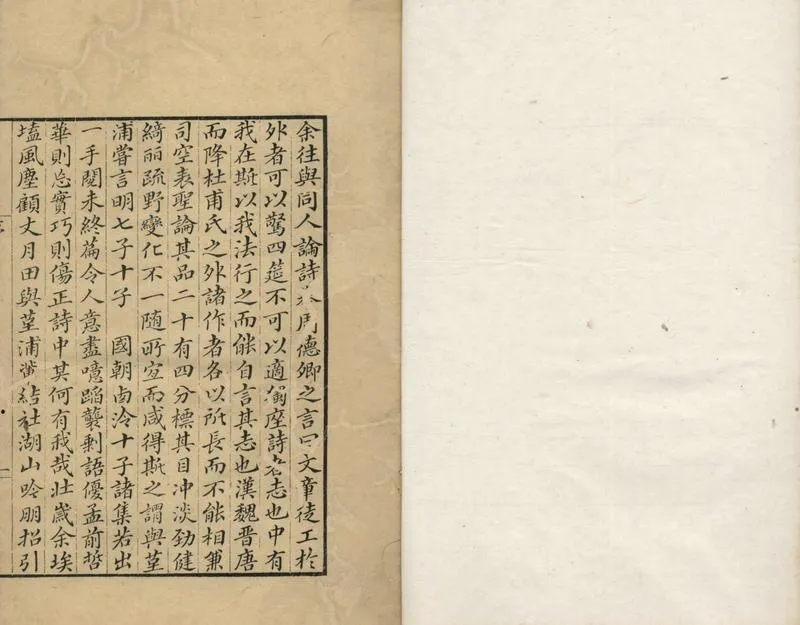 余往與同人論詩述周德卿之言曰文章徒工於
外者可以驚四筵不可以適獨座詩者志也中有
我在斯以我法行之而能自言其志也漢魏晉唐
而降杜甫氏之外諸作者各以所長而不能相兼
司空表聖論其品二十有四分標其目冲淡勁健
綺丽疏野變化不一随所宜而咸得斯之謂與堇
浦嘗言明七子十子 國朝西泠十子諸集若出
一手閱未終篇令人意盡噫蹈襲剩語優孟前哲
華則忘實巧則傷正詩中其何有我哉壯嵗余埃
壒風塵顧丈月田與堇浦輩結社湖山吟朋招引